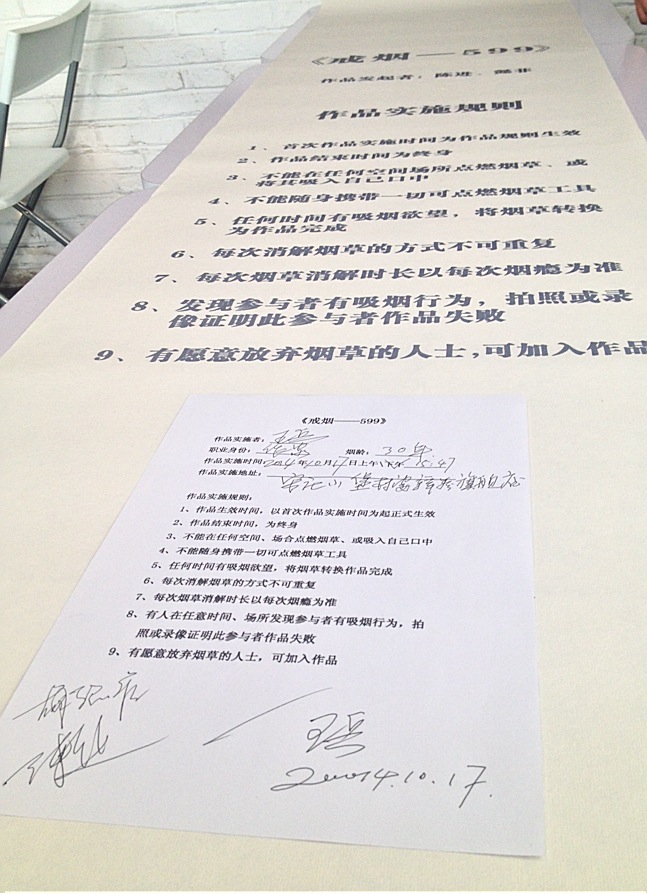 《戒烟——599》
作品发起者：陈进、懿非
作品实施规则
1、首次作品实施时间为作品规则生效
2、作品结束时间为终身
3、不能在任何空间场所点燃烟草、或
将其吸入自己口中
4、不能随身携带一切可点燃烟草工具
5、任何时间有吸烟欲望，将烟草转换
为作品完成
6、每次消解烟草的方式不可重复
7、每次烟草消解时长以每次烟瘾为准
8、发现参与者有吸烟行为，拍照或录
像证明此参与者作品失败
9、有愿意放弃烟草的人士,可加入作品
《戒烟——599》
作品实施者：
职业身份： 烟龄：30年
作品实施时间：2014年10月17日上午/下午15:47
作品实施地址：
作品实施规则：
1、作品生效时间，以首次作品实施时间为起正式生效
2、作品结束时间，为终身
3、不能在任何空间、场合点燃烟草、或吸入自己口中
4、不能随身携带一切可点燃烟草工具
5、任何时间有吸烟欲望，将烟草转换作品完成
6、每次消解烟草的方式不可重复
7、每次烟草消解时长以每次烟瘾为准
8、有人在任意时间、场所发现参与者有吸烟行为，拍
照或录像证明此参与者作品失败
9、有愿意放弃烟草的人士，可加入作品
2014.10.17.